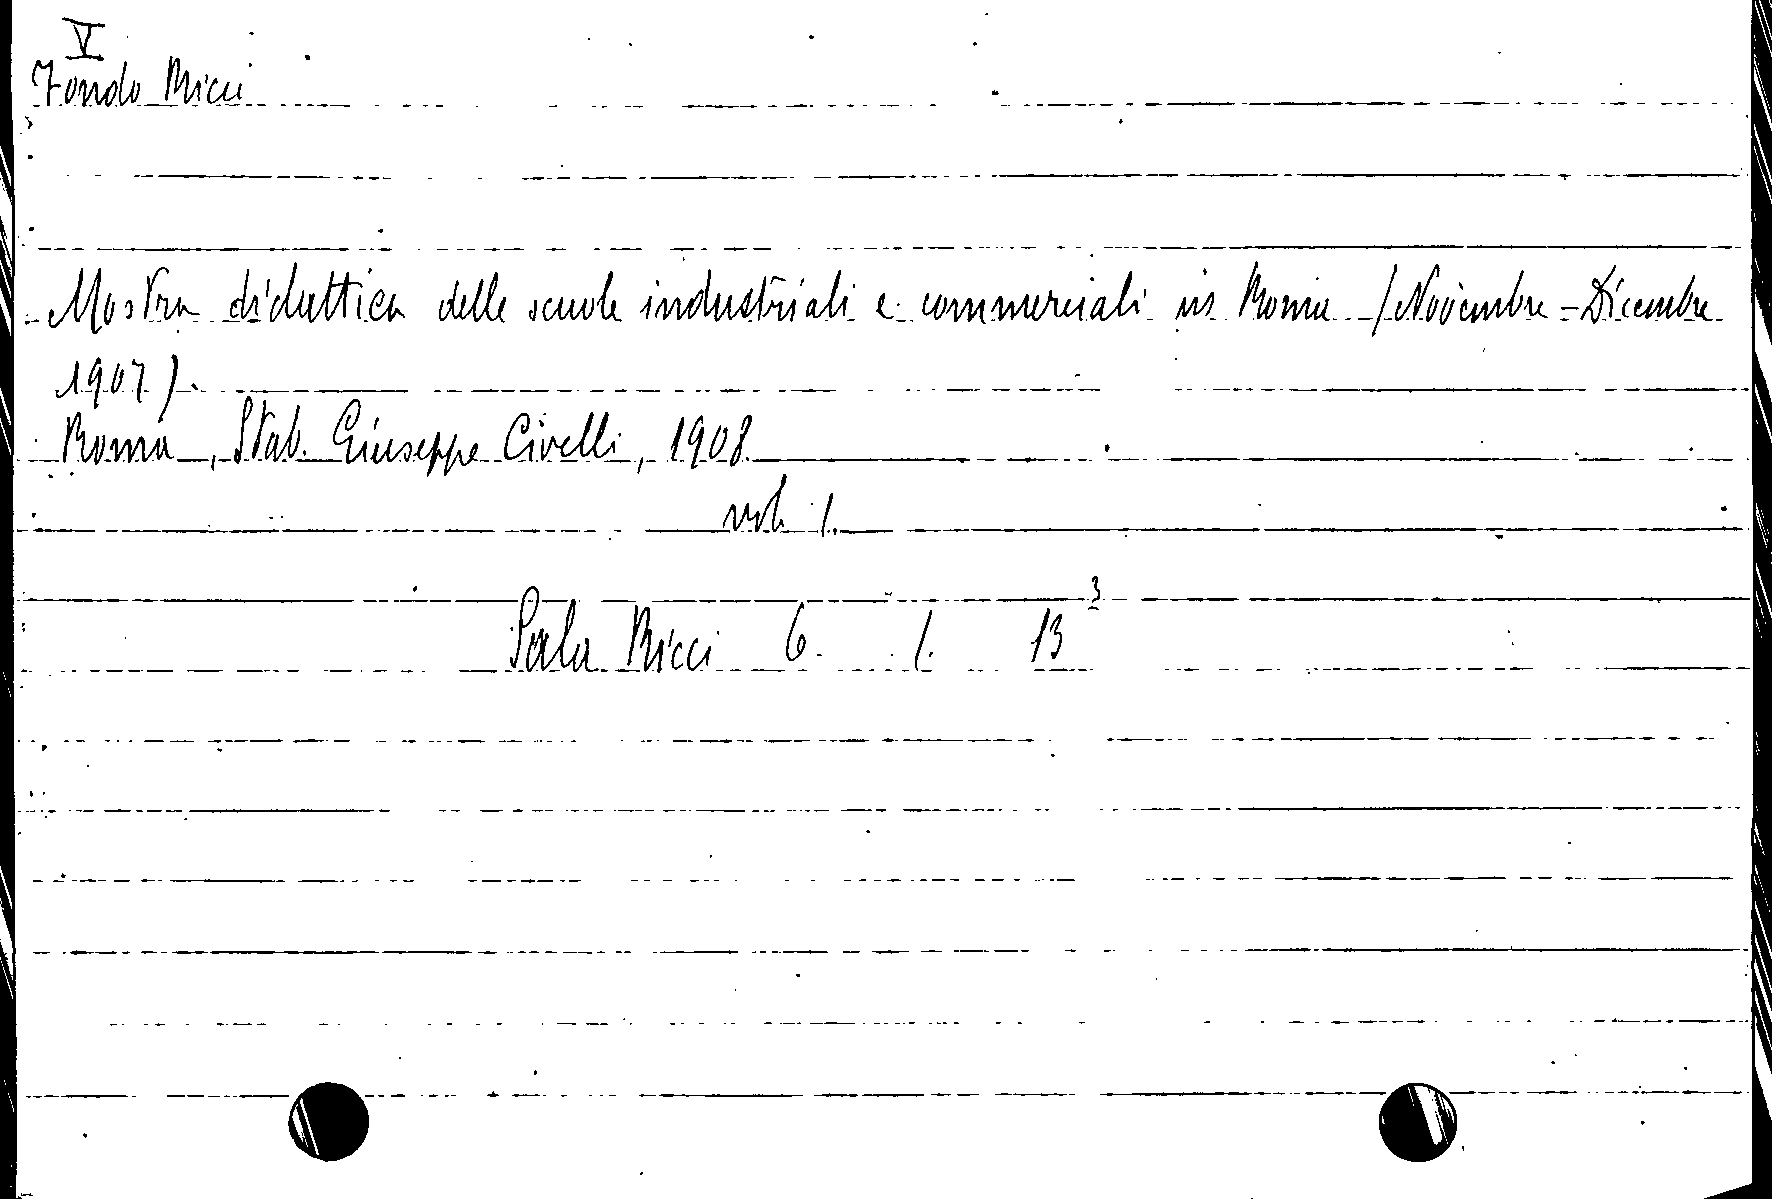 V
Fondo Ricci
Mostra didattica delle scuole industriali e commerciali in Roma (Novembre - Dicembre
1907).
Roma, Stab. Giuseppe Civelli, 1908
vol. 1.
Sala Ricci 6. 1. 13³